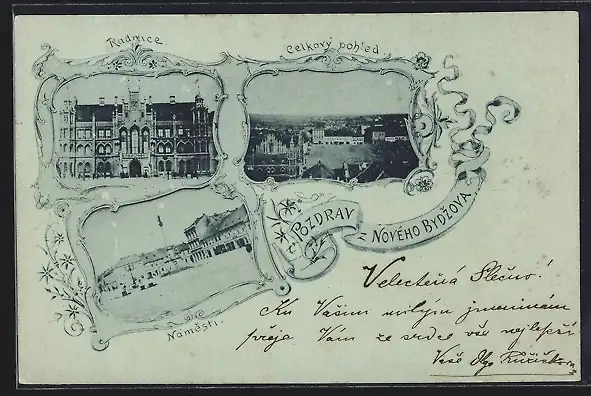 Radnice
Celkový pohled
Náměstí.
POZDRAV
z NOVÉHO BYDŽOVA
Velectěná Slečno!
Ku Vašim milým jmeninám
přeje Vám ze srdce vše nejlepší
Vaše Olga